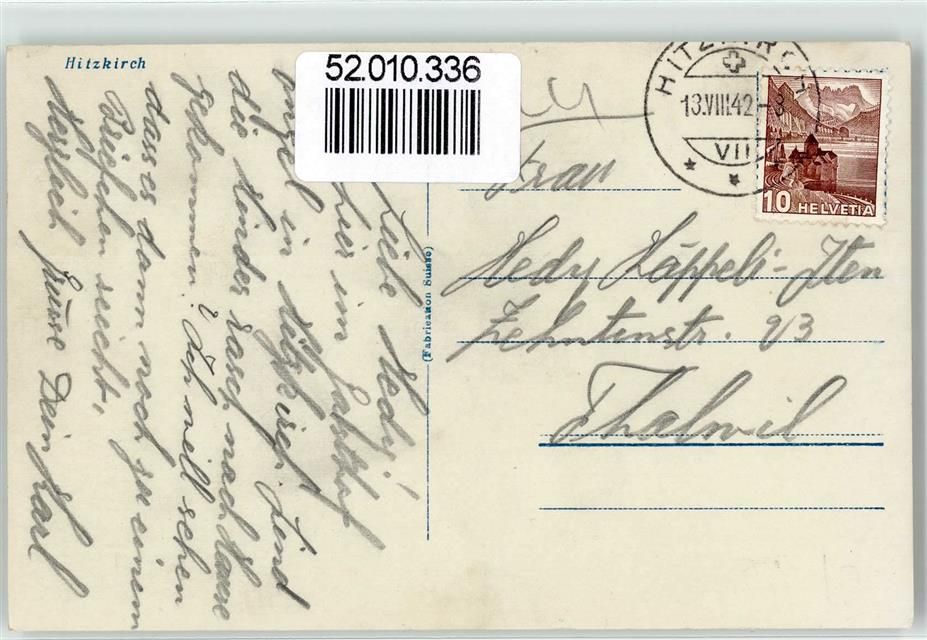 Hitzkirch
52.010.336
HITZKIRCH
13.VIII.42-8
VII
10 HELVETIA
(Fabrication Suisse)
Frau
Hedy Käppeli-Iten
Zehntenstr. 93
Thalwil
Liebe Hedy!
hier im Gasthof
Engel in Hitzkirch. Sind
die Kinder rasch nach Hause
gekommen? Ich will sehen
dass es dann noch zu einem
Briefchen reicht.
Herzlich Grüsse Dein Karl